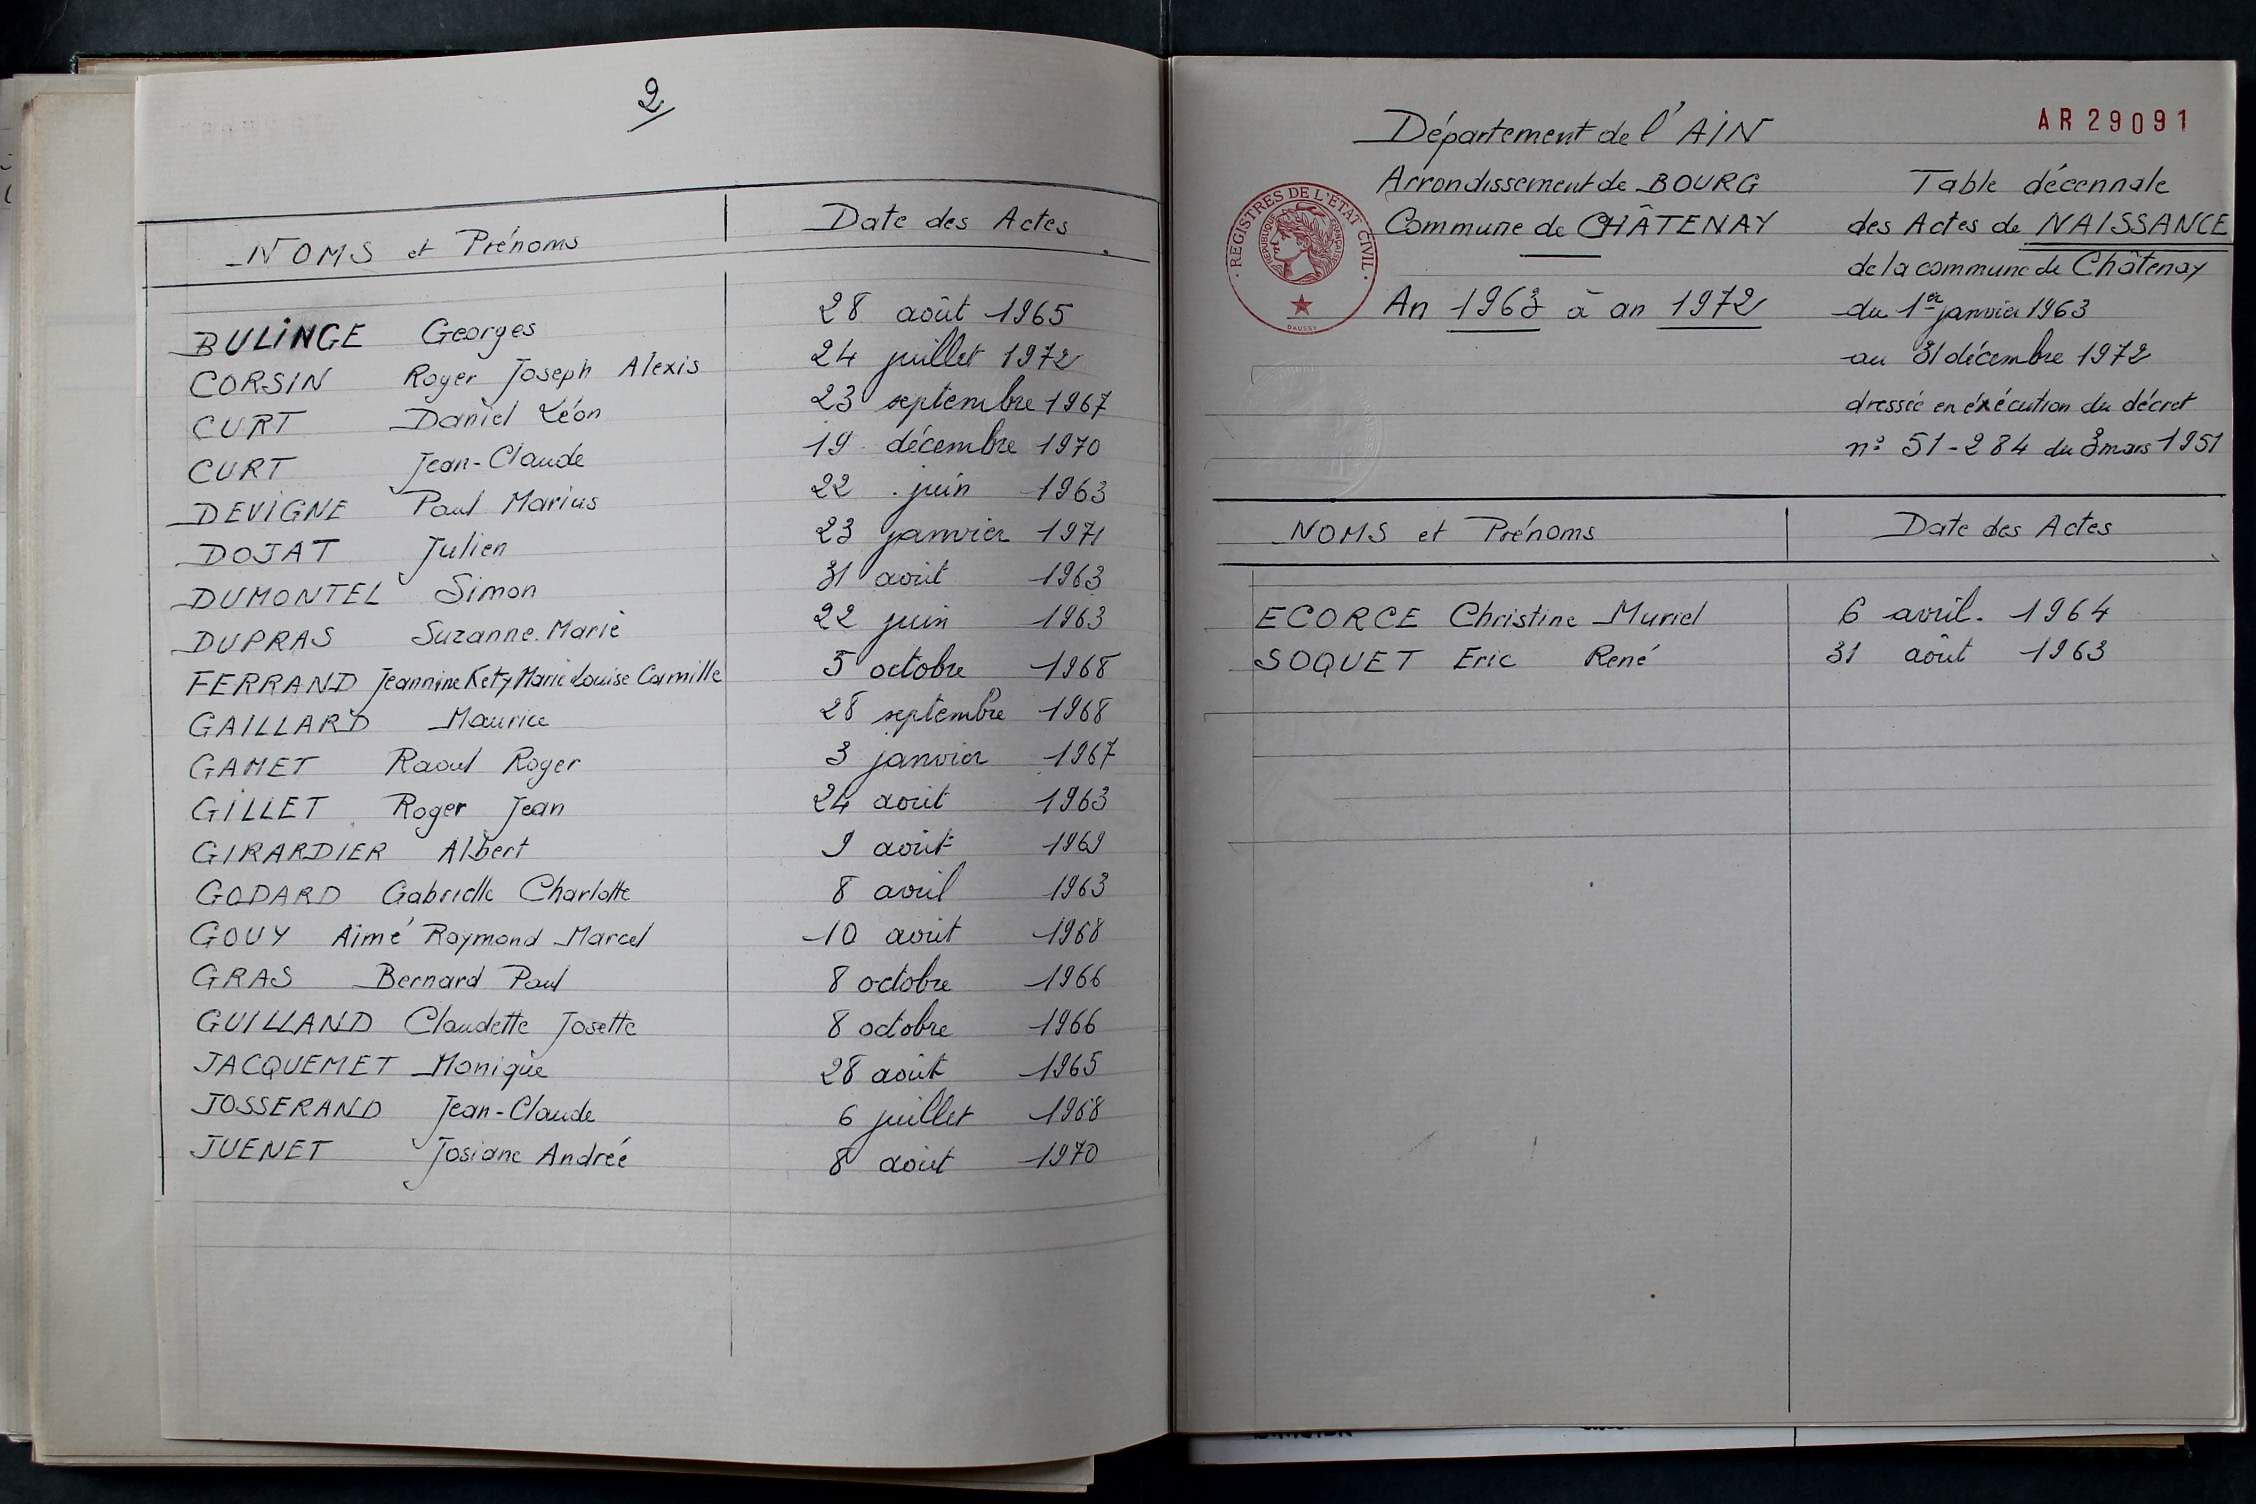 2
NOMS et Prénoms Date des Actes
BULINGE Georges 28 août 1965
CORSIN Roger Joseph Alexis 24 juillet 1972
CURT Daniel Léon 23 septembre 1967
CURT Jean-Claude 19 décembre 1970
DEVIGNE Paul Marius 22 juin 1963
DOJAT Julien 23 janvier 1971
DUMONTEL Simon 31 août 1963
DUPRAS Suzanne Marie 22 juin 1963
FERRAND Jeannine Kety Marie Louise Camille 5 octobre 1968
GAILLARD Maurice 28 septembre 1968
GAMET Raoul Roger 3 janvier 1967
GILLET Roger Jean 24 août 1963
GIRARDIER Albert 9 août 1969
GODARD Gabrielle Charlotte 8 avril 1963
GOUY Aimé Raymond Marcel 10 août 1968
GRAS Bernard Paul 8 octobre 1966
GUILLAND Claudette Josette 8 octobre 1966
JACQUEMET Monique 28 août 1965
JOSSERAND Jean-Claude 6 juillet 1968
JUENET Josiane Andreé 8 août 1970
AR29091
Département de l'AIN
Arrondissement de BOURG
Commune de CHÂTENAY
An 1963 à an 1972
REGISTRES DE L'ETAT CIVIL
REPUBLIQUE FRANÇAISE
DAUSSY
Table décennale
des Actes de NAISSANCE
de la commune de Châtenay
du 1er janvier 1963
au 31 décembre 1972
dressée en éxécution du décret
n° 51-284 du 3 mars 1951
NOMS et Prénoms Date des Actes
ECORCE Christine Muriel 6 avril. 1964
SOQUET Eric René 31 août 1963